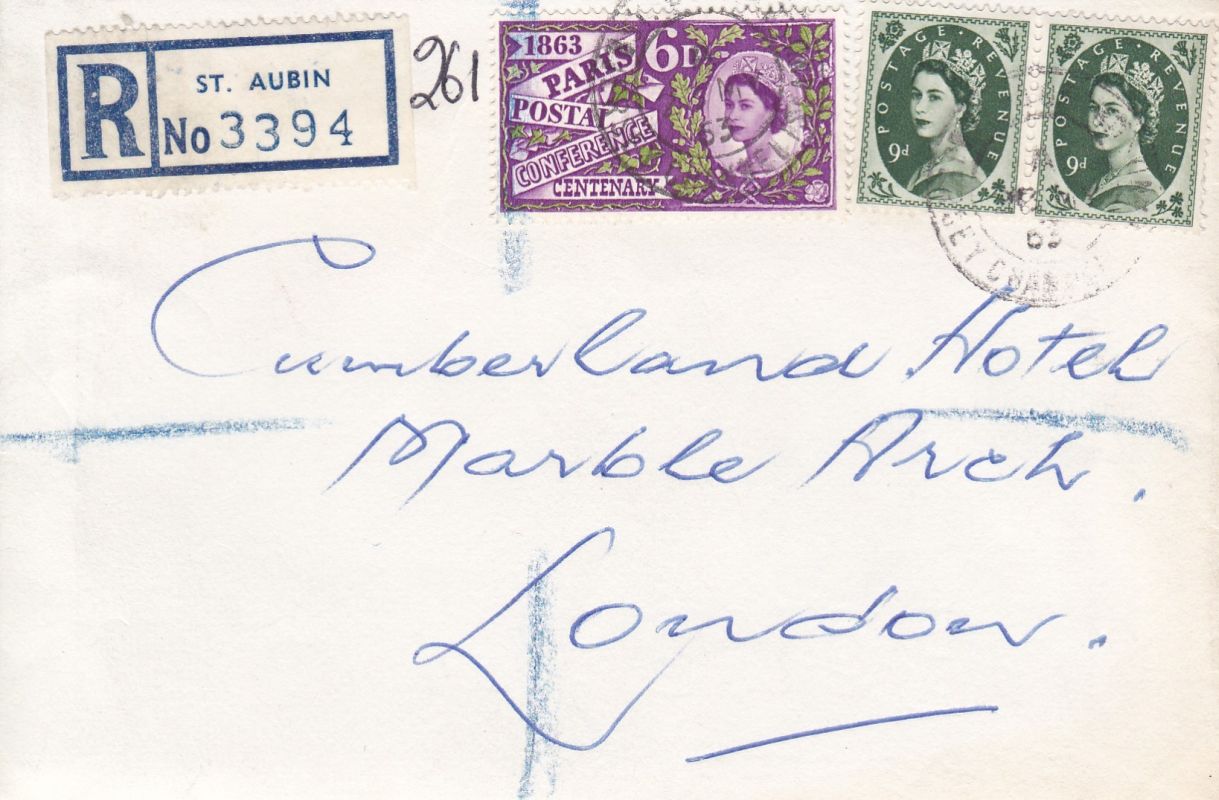 R
ST. AUBIN
No 3394
261
1863
PARIS
POSTAL
CONFERENCE
CENTENARY
6D
POSTAGE REVENUE
9d
POSTAGE REVENUE
9d
63
63
Cumberland Hotel
Marble Arch.
London.